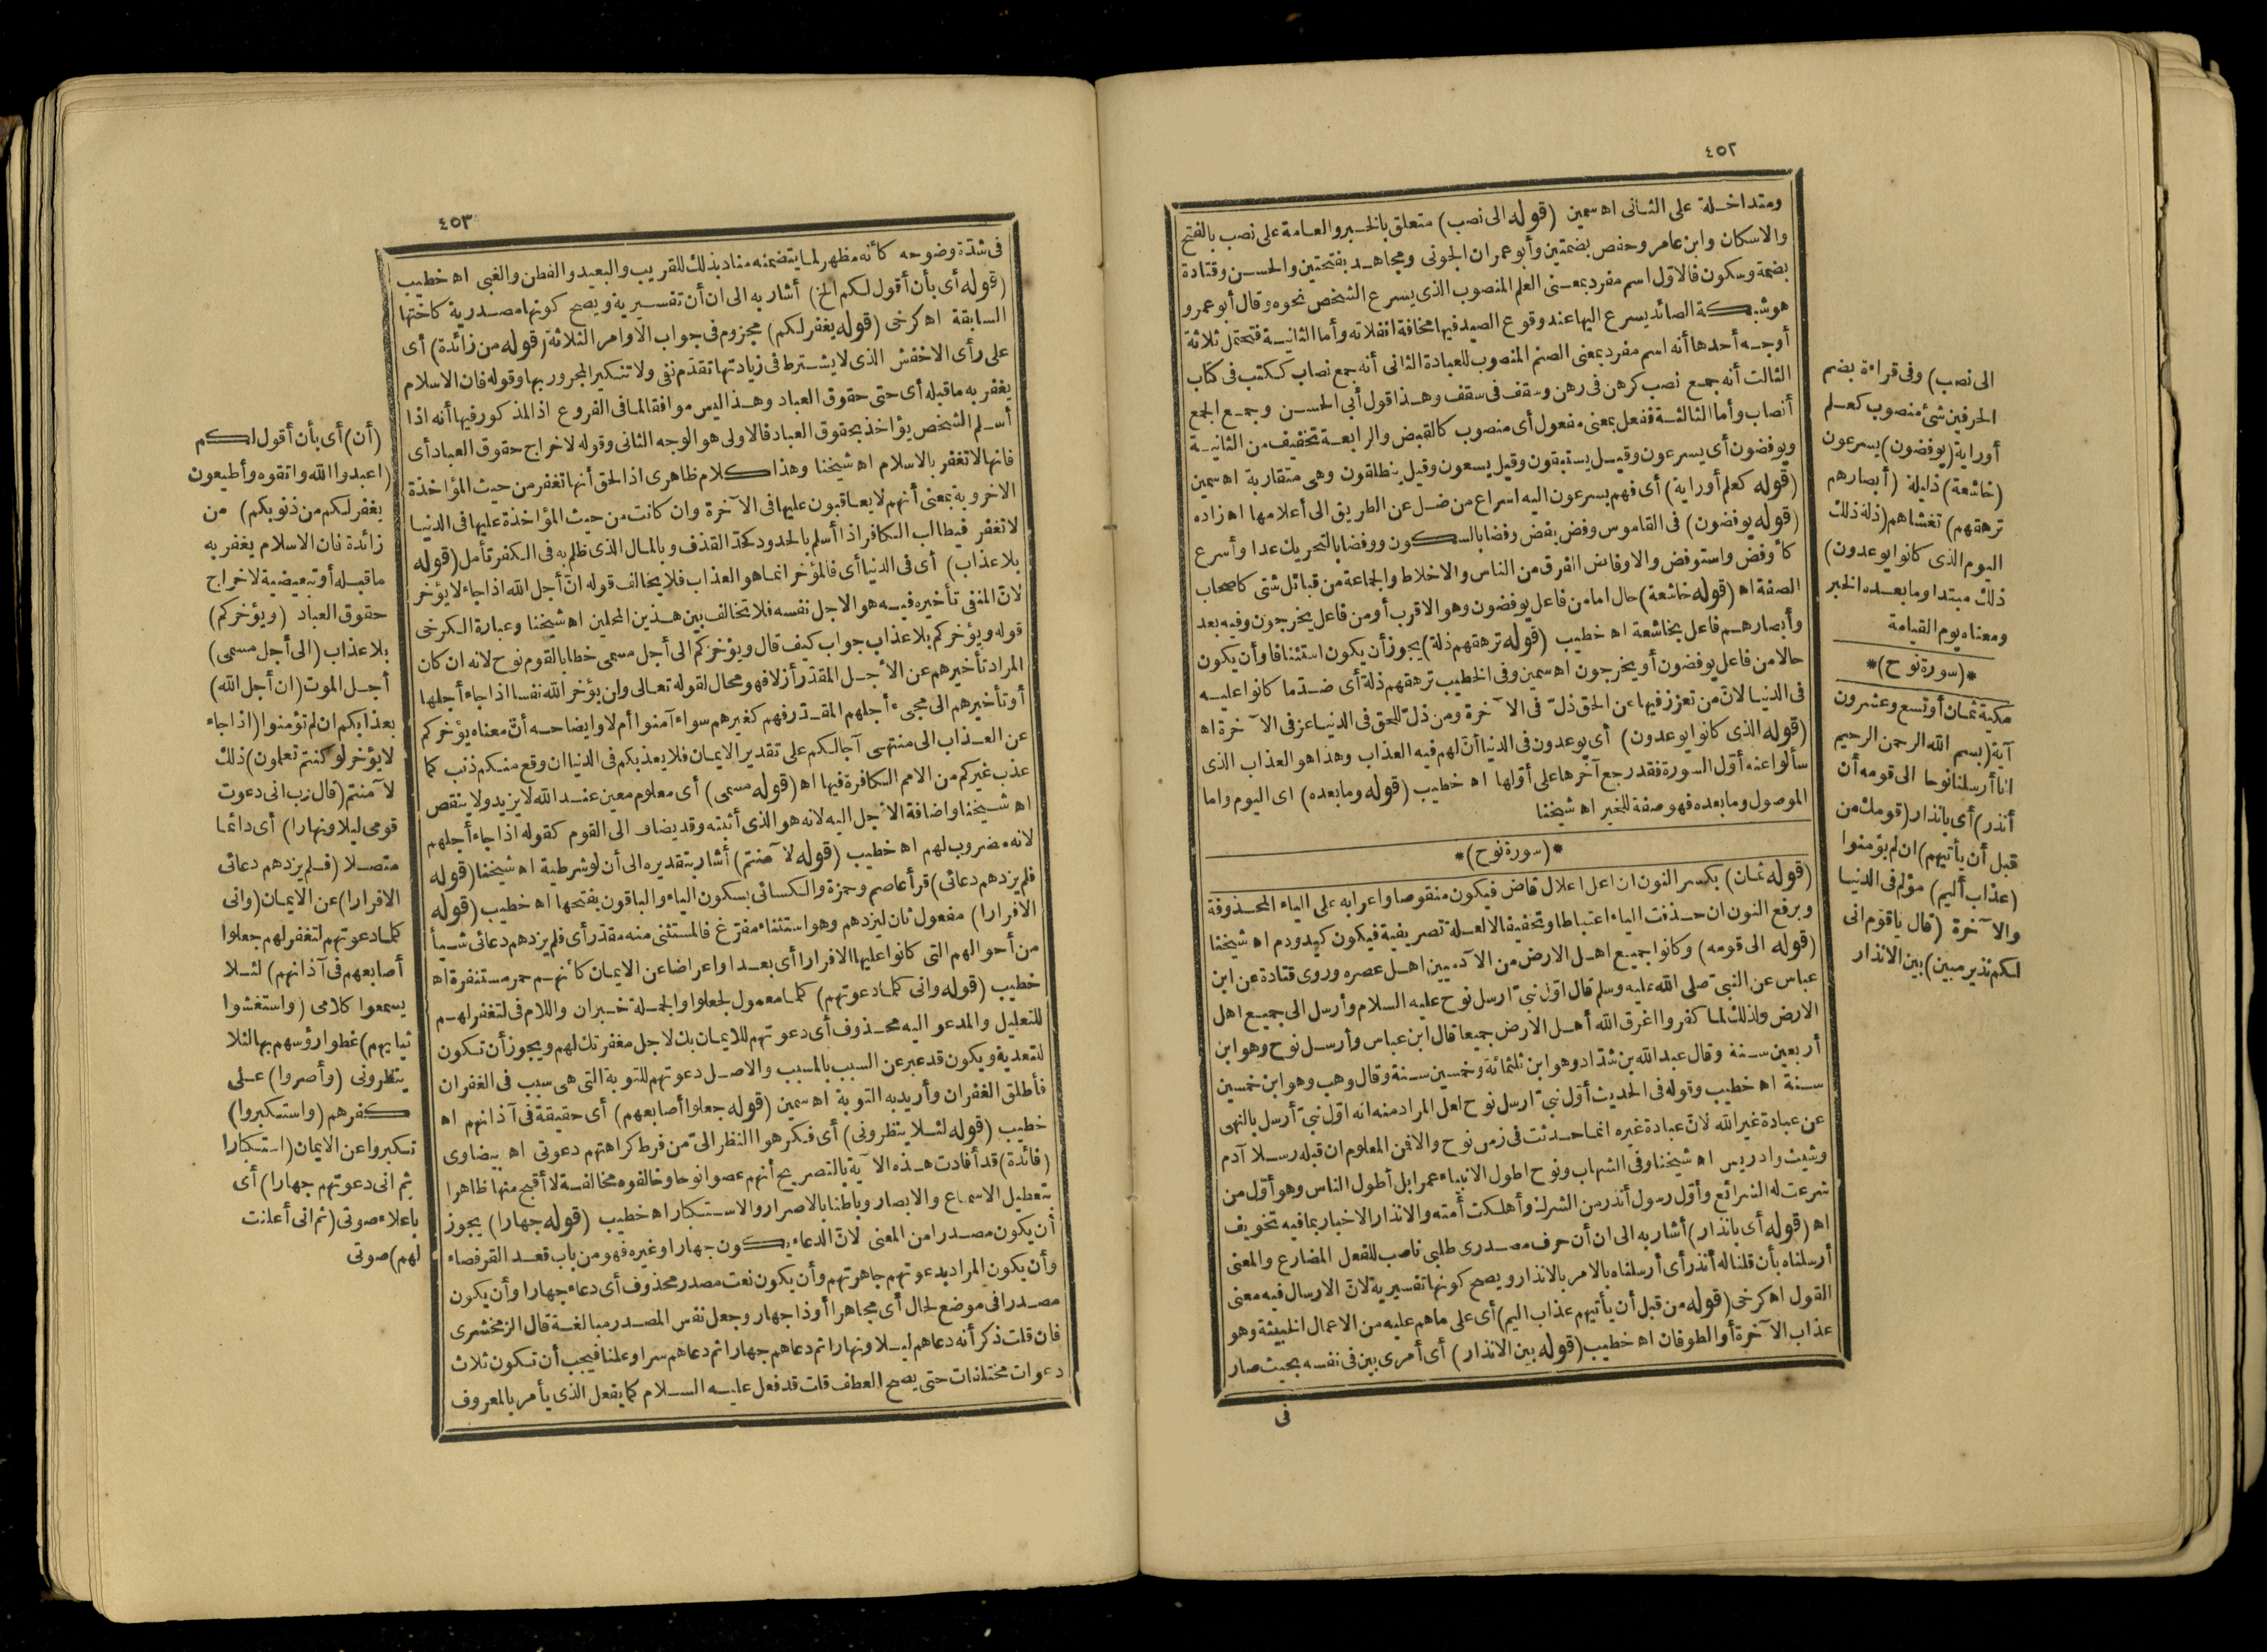 ٤٥٢
ومتداخلة على الثانى اه سمين (قوله الى نصب) متعلق بالخبر والعامة على نصب بالفتح
والاسكان وابن عامر وحفص بضمتين وأبو عمران الجونى ومجاهد بفتحتين والحسن وقتادة
بضمة وسكون فالاول اسم مفرد بمعنى العلم المنصوب الذى يسرع الشخص نحوه وقال أبو عمرو
هو شبكة الصائد يسرع اليها عند وقوع الصيد فيها مخافة انفلاته وأما الثانية فتحتمل ثلاثة
أوجه أحدها أنه اسم مفرد بمعنى الصنم المنصوب للعبادة الثانى أنه جمع نصاب ككتب فى كتاب
الثالث أنه جمع نصب كرهن فى رهن وسقف فى سقف وهذا قول أبى الحسن وجمع الجمع
أنصاب وأما الثالثة ففعل بمعنى مفعول أى منصوب كالقبض والرابعة تخفيف من الثانية
ويوفضون أى يسرعون وقيل يستبقون وقيل يسعون وقيل ينطلقون وهى متقاربة اه سمين
(قوله كعلم أو راية) أى فهم يسرعون اليه اسراع من ضل عن الطريق الى أعلامها اه زاده
(قوله يوفضون) فى القاموس وفض يفض وفضا بالسكون ووفضا بالتحريك عدا وأسرع
كأوفض واستوفض والاوفاض الفرق من الناس والاخلاط والجماعة من قبائل شتى كاصحاب
الصفة اه (قوله خاشعة) حال اما من فاعل يوفضون وهو الاقرب أو من فاعل يخرجون وفيه بعد
وأبصارهم فاعل بخاشعة اه خطيب (قوله ترهقهم ذلة) يجوز أن يكون استئنافا وأن يكون
حالا من فاعل يوفضون أو يخرجون اه سمين وفى الخطيب ترهقهم ذلة أى ضد ما كانوا عليه
فى الدنيا لان من تعزز فيها عن الحق ذل فى الآخرة ومن ذل للحق فى الدنيا عز فى الآخرة اه
(قوله الذى كانوا يوعدون) أى يوعدون فى الدنيا أن لهم فيه العذاب وهذا هو العذاب الذى
سألوا عنه أول السورة فقد رجع آخرها على أولها اه خطيب (قوله وما بعده) اى اليوم واما
الموصول وما بعده فهو صفة للخبر اه شيخنا
*(سورة نوح)*
(قوله ثمان) بكسر النون ان اعل اعلال قاض فيكون منقوصا واعرابه على الياء المحذوفة
وبرفع النون ان حذفت الياء اعتباطا وتخفيفا لالعلة تصريفية فيكون كيد ودم اه شيخنا
(قوله الى قومه) وكانوا جميع اهل الارض من الآدميين اهل عصره وروى قتادة عن ابن
عباس عن النبى صلى الله عليه وسلم قال اول نبى ارسل نوح عليه السلام وأرسل الى جميع اهل
الارض ولذلك لما كفروا اغرق الله أهل الارض جميعا قال ابن عباس وأرسل نوح وهو ابن
أربعين سنة وقال عبد الله بن شداد وهو ابن ثلثمائة وخمسين سنة وقال وهب وهو ابن خمسين
سنة اه خطيب وقوله فى الحديث أول نبى ارسل نوح لعل المراد منه انه اول نبى أرسل بالنهى
عن عبادة غير الله لان عبادة غيره انما حدثت فى زمن نوح والا فمن المعلوم ان قبله رسلا آدم
وشيث وادريس اه شيخنا وفى الشهاب ونوح اطول الانبياء عمرا بل أطول الناس وهو أول من
شرعت له الشرائع وأول رسول أنذر من الشرك وأهلكت أمته والانذار الاخبار بما فيه تخويف
اه (قوله أى بانذار) أشار به الى ان أن حرف مصدرى طلبى ناصب للفعل المضارع والمعنى
أرسلناه بأن قلنا له أنذر أى أرسلناه بالامر بالانذار ويصح كونها تفسيرية لان الارسال فيه معنى
القول اه كرخى (قوله من قبل أن يأتيهم عذاب اليم) أى على ما هم عليه من الاعمال الخبيثة وهو
عذاب الآخرة أو الطوفان اه خطيب (قوله بين الانذار) أى أمرى بين فى نفسه بحيث صار
فى
الى نصب) وفى قراءة بضم
الحرفين شئ منصوب كعلم
أو راية (يوفضون) يسرعون
(خاشعة) ذليلة (أبصارهم
ترهقهم) تغشاهم (ذلة ذلك
اليوم الذى كانوا يوعدون)
ذلك مبتدا وما بعده الخبر
ومعناه يوم القيامة
*(سورة نوح)*
مكية ثمان أو تسع وعشرون
آية (بسم الله الرحمن الرحيم
انا أرسلنا نوحا الى قومه أن
أنذر) أى بانذار (قومك من
قبل أن يأتيهم) ان لم يؤمنوا
(عذاب أليم) مؤلم فى الدنيا
والآخرة (قال يا قوم انى
لكم نذير مبين) بين الانذار
٤٥٣
فى شدة وضوحه كأنه مظهر لما يتضمنه مناد بذلك للقريب والبعيد والفطن والغبى اه خطيب
(قوله أى بأن أقول لكم الخ) أشار به الى ان أن تفسيرية ويصح كونها مصدرية كاختها
السابقة اه كرخى (قوله يغفر لكم) مجزوم فى جواب الاوامر الثلاثة (قوله من زائدة) أى
على رأى الاخفش الذى لا يشترط فى زيادتها تقدم نفى ولا تنكير المجرور بها وقوله فان الاسلام
يغفر به ما قبله أى حتى حقوق العباد وهذا ليس موافقا لما فى الفروع اذ المذكور فيها أنه اذا
أسلم الشخص يؤاخذ بحقوق العباد فالاولى هو الوجه الثانى وقوله لاخراج حقوق العباد أى
فانها لا تغفر بالاسلام اه شيخنا وهذا كلام ظاهرى اذ الحق أنها تغفر من حيث المؤاخذة
الاخروية بمعنى أنهم لا يعاقبون عليها فى الآخرة وان كانت من حيث المؤاخذة عليها فى الدنيا
لا تغفر فيطالب الكافر اذا أسلم بالحدود كحد القذف وبالمال الذى ظلم به فى الكفر تأمل (قوله
بلا عذاب) أى فى الدنيا أى فالمؤخر انما هو العذاب فلا يخالف قوله ان أجل الله اذا جاء لا يؤخر
لان المنفى تأخيره فيه هو الاجل نفسه فلا تخالف بين هذين المحلين اه شيخنا وعبارة الكرخى
قوله ويؤخركم بلا عذاب جواب كيف قال ويؤخركم الى أجل مسمى خطابا لقوم نوح لانه ان كان
المراد تأخيرهم عن الأجل المقدر أزلا فهو محال لقوله تعالى ولن يؤخر الله نفسا اذا جاء أجلها
أو تأخيرهم الى مجىء أجلهم المقدر فهم كغيرهم سواء آمنوا أم لا وايضاحه أن معناه يؤخركم
عن العذاب الى منتهى آجالكم على تقدير الايمان فلا يعذبكم فى الدنيا ان وقع منكم ذنب كما
عذب غيركم من الامم الكافرة فيها اه (قوله مسمى) أى معلوم معين عند الله لا يزيد ولا ينقص
اه شيخنا واضافة الأجل اليه لانه هو الذى أثبته وقد يضاف الى القوم كقوله اذا جاء أجلهم
لانه مضروب لهم اه خطيب (قوله لآمنتم) أشار بتقديره الى أن لو شرطية اه شيخنا (قوله
فلم يزدهم دعائى) قرأ عاصم وحمزة والكسائى بسكون الياء والباقون بفتحها اه خطيب (قوله
الا فرارا) مفعول ثان ليزدهم وهو استثناء مفرغ فالمستثنى منه مقدر أى فلم يزدهم دعائى شيأ
من أحوالهم التى كانوا عليها الا فرارا أى بعدا واعراضا عن الايمان كأنهم حمر مستنفرة اه
خطيب (قوله وانى كلما دعوتهم) كلما معمول لجعلوا والجملة خبر ان واللام فى لتغفر لهم
للتعليل والمدعو اليه محذوف أى دعوتهم للايمان بك لاجل مغفرتك لهم ويجوز أن تكون
للتعدية ويكون قد عبر عن السبب بالمسبب والاصل دعوتهم للتوبة التى هى سبب فى الغفران
فأطلق الغفران وأريد به التوبة اه سمين (قوله جعلوا أصابعهم) أى حقيقة فى آذانهم اه
خطيب (قوله لئلا ينظرونى) أى فكرهوا النظر الى من فرط كراهتهم دعوتى اه بيضاوى
(فائدة) قد أفادت هذه الآية بالتصريح أنهم عصوا نوحا وخالفوه مخالفة لا أقبح منها ظاهرا
بتعطيل الاسماع والابصار وباطنا بالاصرار والاستكبار اه خطيب (قوله جهارا) يجوز
أن يكون مصدرا من المعنى لان الدعاء يكون جهارا وغيره فهو من باب قعد القرفصاء
وأن يكون المراد بدعوتهم جاهرتهم وأن يكون نعت مصدر محذوف أى دعاء جهارا وأن يكون
مصدرا فى موضع الحال أى مجاهرا أو ذا جهار وجعل نفس المصدر مبالغة قال الزمخشرى
فان قلت ذكر أنه دعاهم ليلا ونهارا ثم دعاهم جهارا ثم دعاهم سرا وعلنا فيجب أن تكون ثلاث
دعوات مختلفات حتى يصح العطف قلت قد فعل عليه السلام كما يفعل الذى يأمر بالمعروف
(أن) أى بأن أقول لكم
(اعبدوا الله واتقوه وأطيعون
يغفر لكم من ذنوبكم) من
زائدة فان الاسلام يغفر به
ما قبله أو تبعيضية لاخراج
حقوق العباد (ويؤخركم)
بلا عذاب (الى أجل مسمى)
أجل الموت (ان أجل الله)
بعذابكم ان لم تؤمنوا (اذا جاء
لا يؤخر لو كنتم تعلمون) ذلك
لآمنتم (قال رب انى دعوت
قومى ليلا ونهارا) أى دائما
متصلا (فلم يزدهم دعائى
الا فرارا) عن الايمان (وانى
كلما دعوتهم لتغفر لهم جعلوا
أصابعهم فى آذانهم) لئلا
يسمعوا كلامى (واستغشوا
ثيابهم) غطوا رؤسهم بها لئلا
ينظرونى (وأصروا) على
كفرهم (واستكبروا)
تكبروا عن الايمان (استكبارا
ثم انى دعوتهم جهارا) أى
باعلاء صوتى (ثم انى أعلنت
لهم) صوتى